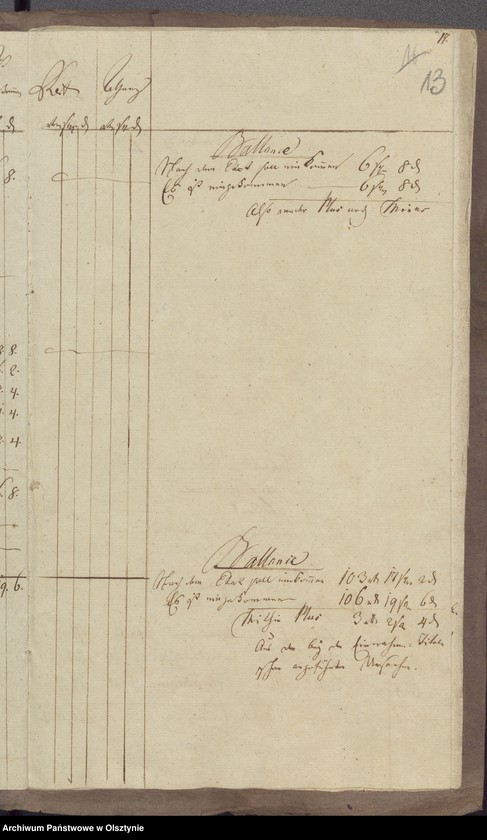 17.
13
Rest
8.
Ballance
Nach dem Etat soll einkommen 6 sgr 8 d
Es ist eingekommen 6 sgr 8 d
Also weder Plus noch Minus
8.
2.
4.
4.
4.
8.
Ballance
9. 6.
Nach dem Etat soll einkommen 103 rt 17 sgr 2 d
Es ist eingekommen 106 rt 19 sgr 6 d
Mithin Plus 3 rt 2 sgr 4 d
Aus der bey den Einnahme Titeln
schon angeführten Ursachen.
Archiwum Państwowe w Olsztynie